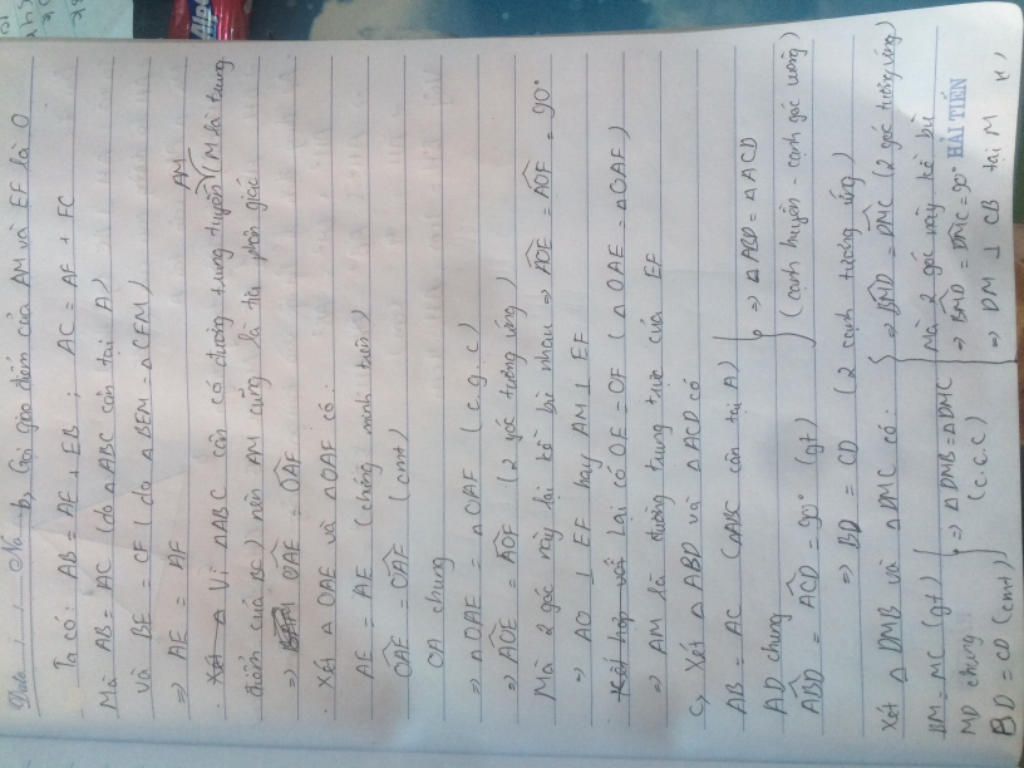 Date / / No
b, Gọi giao điểm của AM và EF là O
Ta có: AB = AE + EB ; AC = AF + FC
Mà AB = AC (do △ABC cân tại A)
và BE = CF (do △BEM = △CFM)
⇒ AE = AF
Vì △ABC cân có đường trung tuyến AM (M là trung
điểm của BC) nên AM cũng là tia phân giác
⇒ OAE = OAF
Xét △OAE và △OAF có:
AF = AE (chứng minh trên)
OAE = OAF (cmt)
OA chung
⇒ △OAE = △OAF (c.g.c)
⇒ AOE = AOF (2 góc tương ứng)
Mà 2 góc này lại kề bù nhau ⇒ AOE = AOF = 90°
⇒ AO ⊥ EF hay AM ⊥ EF
Lại có OE = OF (△OAE = △OAF)
⇒ AM là đường trung trực của EF
c, Xét △ABD và △ACD có
AB = AC (△ABC cân tại A)
AD chung
ABD = ACD = 90° (gt)
⇒ △ABD = △ACD
(cạnh huyền - cạnh góc vuông)
⇒ BD = CD (2 cạnh tương ứng)
Xét △DMB và △DMC có:
BM = MC (gt)
MD chung
BD = CD (cmt)
⇒ △DMB = △DMC
(c.c.c)
⇒ BMD = DMC (2 góc tương ứng)
Mà 2 góc này kề bù
⇒ BMD = DMC = 90°
⇒ DM ⊥ CB tại M
HẢI TIẾN